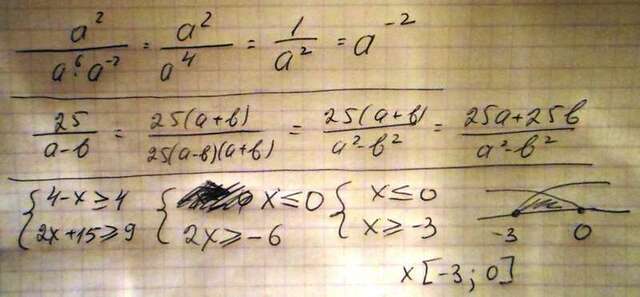 a² / (a⁶ · a⁻²) = a² / a⁴ = 1 / a² = a⁻²
25 / (a-b) = 25(a+b) / 25(a-b)(a+b) = 25(a+b) / (a²-b²) = (25a+25b) / (a²-b²)
{ 4-x ≥ 4 { x ≤ 0 { x ≤ 0
{ 2x+15 ≥ 9 { 2x ≥ -6 { x ≥ -3
-3 0
x [-3; 0]